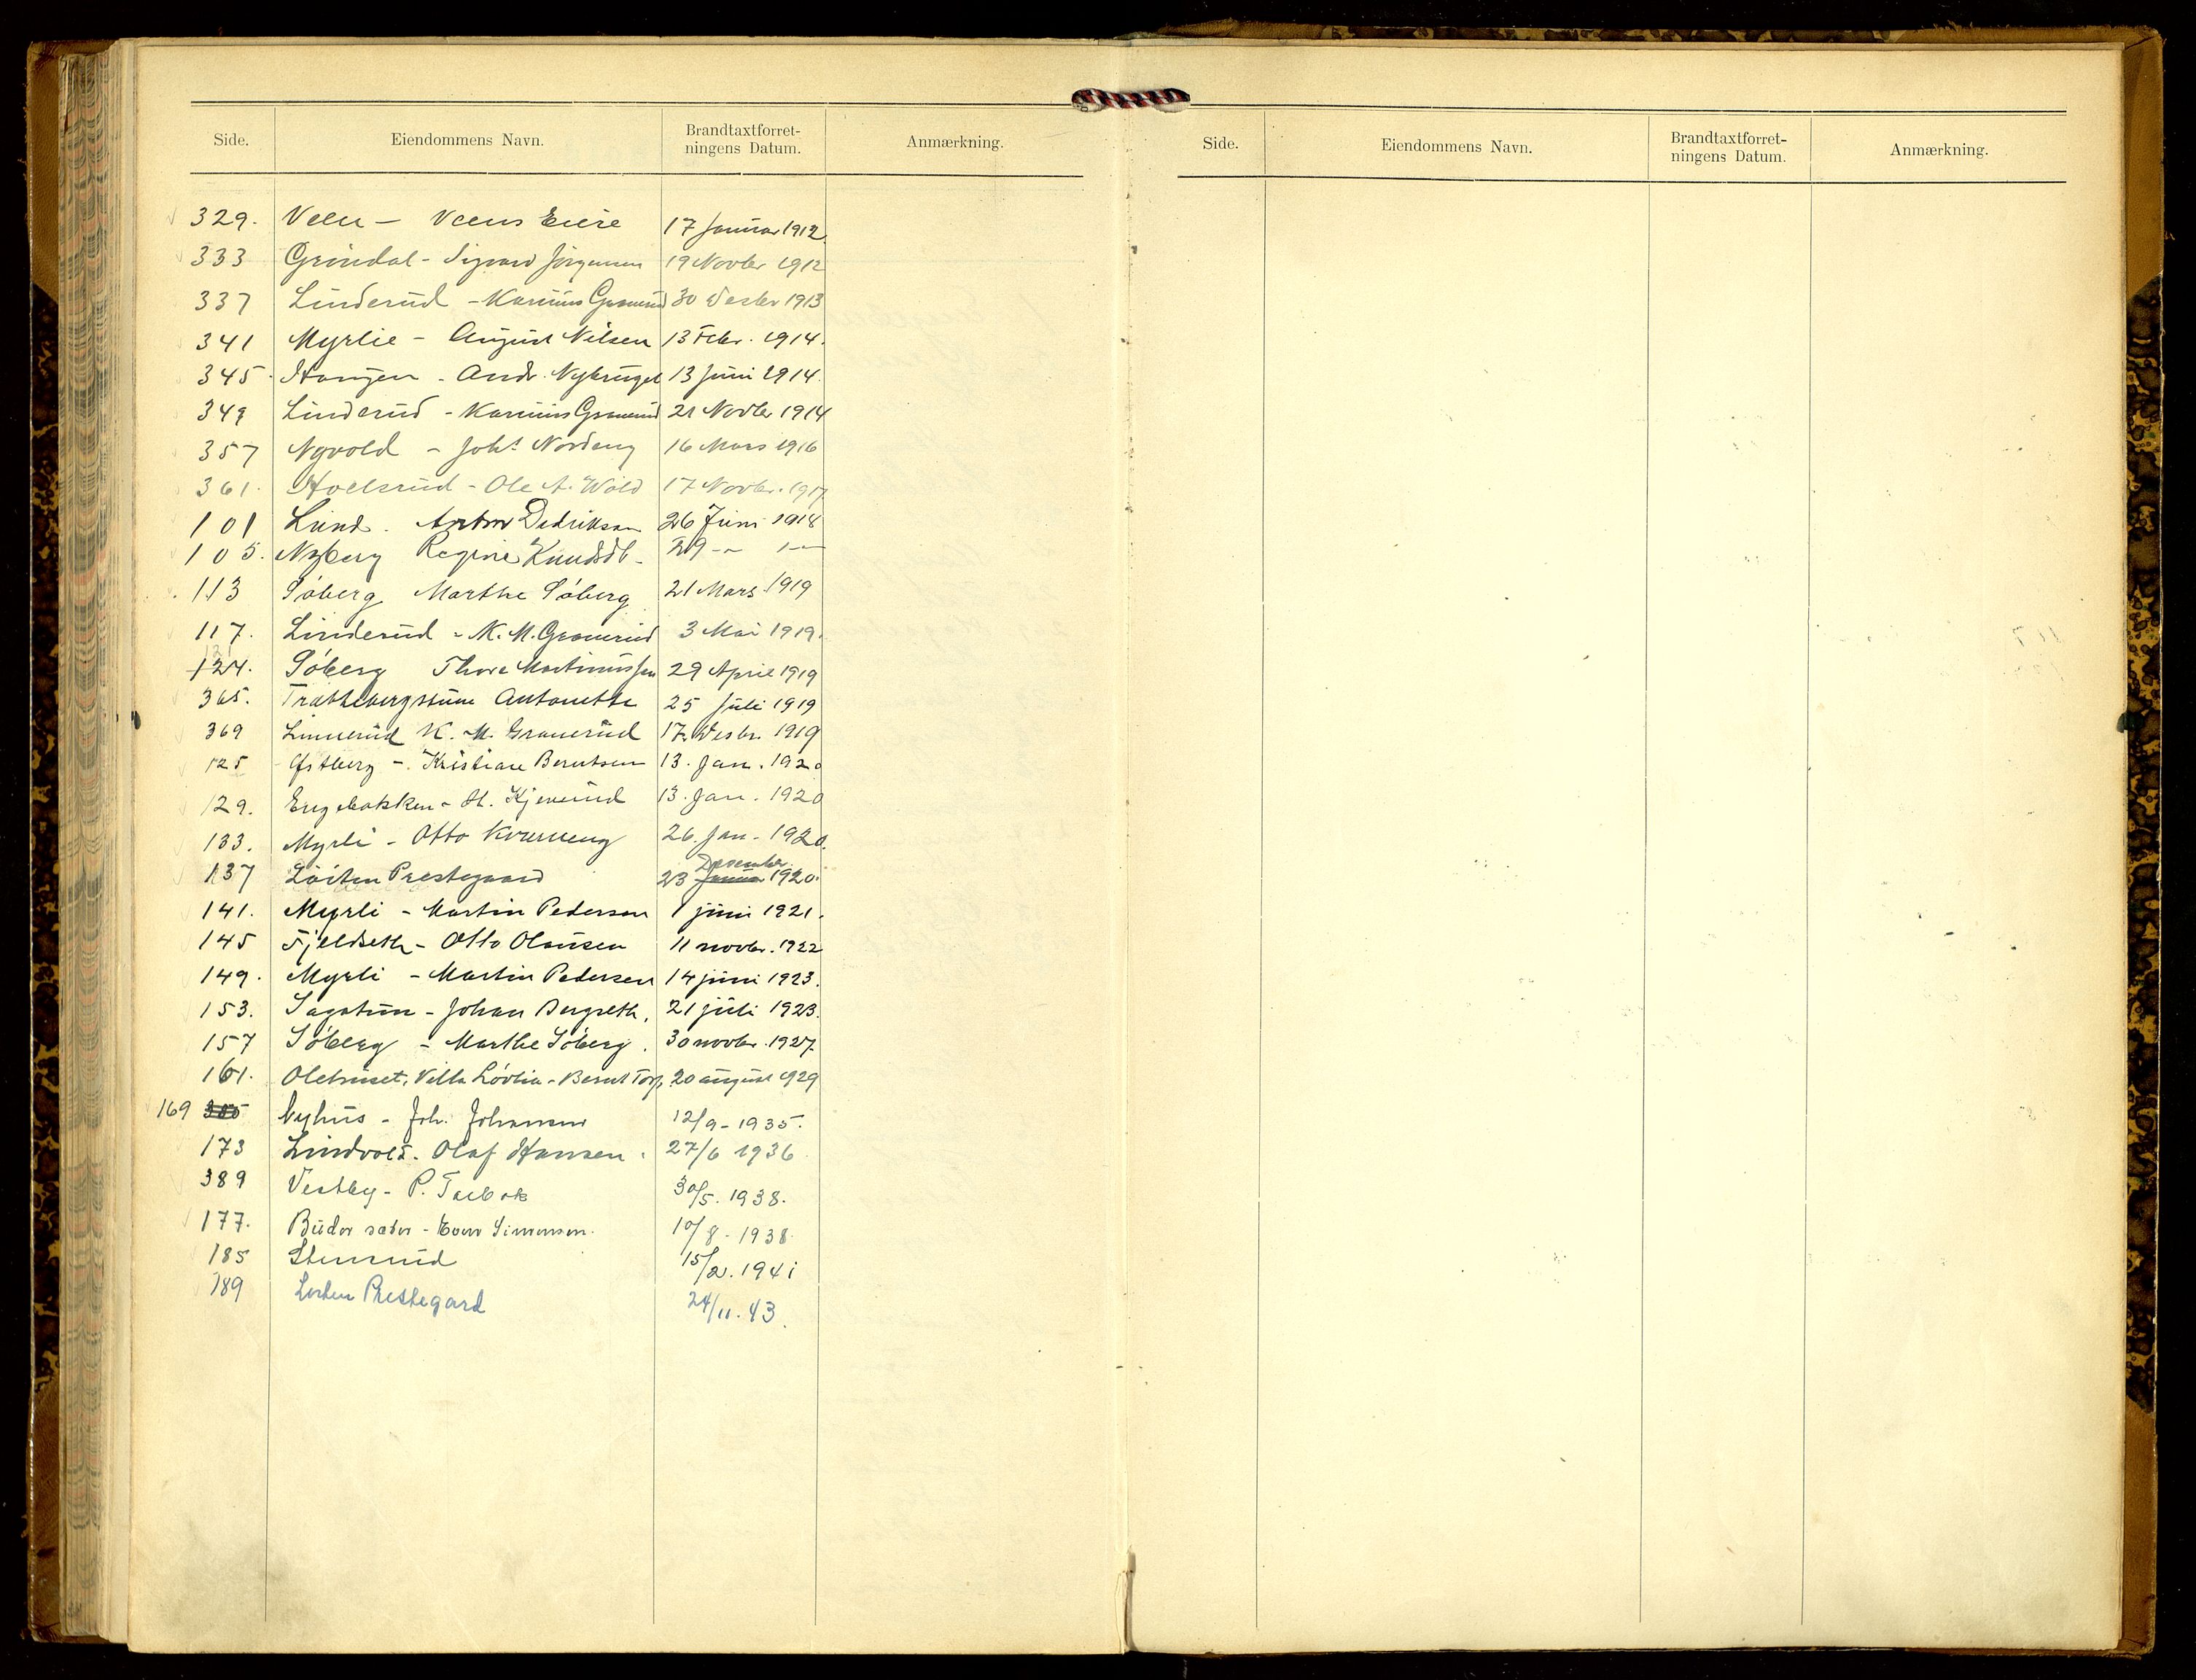 Side. Eiendommens Navn. Brandtaxtforret- Anmærkning.
ningens Datum.
329. Veen - Veens Eiere 17 Januar 1912.
333 Gröndal - Sigvard Jörgensen 19 Novbr 1912
337 Linderud - Karinius Gramrud 30 Desbr 1913
341 Myrlie - August Nilsen 13 Febr. 1914.
345. Haugen - Andr. Nybruget 13 Juni 1914.
349 Linderud - Karinius Gramrud 21 Novbr 1914
357 Nyvold - Johs Nordeng 16 Mars 1916
361. Hoelsrud - Ole A. Wold 17 Novbr. 1917
101 Lund. Anton Dedriksen 26 Juni 1918
105. Nyberg Regine Knudsdt.
113 Söberg Marthe Söberg 21 Mars 1919
117. Linderud - K. M. Gramrud 3 Mai 1919.
124. 121 Söberg Thora Martinussen 29 April 1919
365. Trættebergstuen Antonette 25 Juli 1919
369 Linnerud K. M. Gramerud 17. Desbr. 1919
125 Østberg - Kristiane Berntsen 13. Jan. 1920
129. Engebakken - H. Kjennerud 13. Jan. 1920
133. Myrli - Otto Kværneng 26. Jan. 1920.
137 Löiten Prestegaard 23 Januar Desember 1920.
141. Myrli - Martin Pedersen 1 juni 1921.
145 Fjeldseth - Otto Olausen 11 novbr. 1922
149. Myrli - Martin Pedersen 14 juni 1923.
153. Sagatun - Johan Bergseth. 21 juli 1923.
157 Söberg - Marthe Söberg. 30 novbr. 1927.
161. Olehuset, Villa Lövlia - Bernt Torp 20 august 1929
169 385 Nyhus - Joh. Johansen 12/9 - 1935.
173 Lindvold. Olaf Hansen. 27/6 1936
389 Vestby - P. 30/5. 1938.
177. Budor sæter - Even Simensen. 10/8 - 1938.
185 Stenrud 15/2. 1941
189 Løiten Prestegard 24/11. 43.
Side. Eiendommens Navn. Brandtaxtforret- Anmærkning.
ningens Datum.